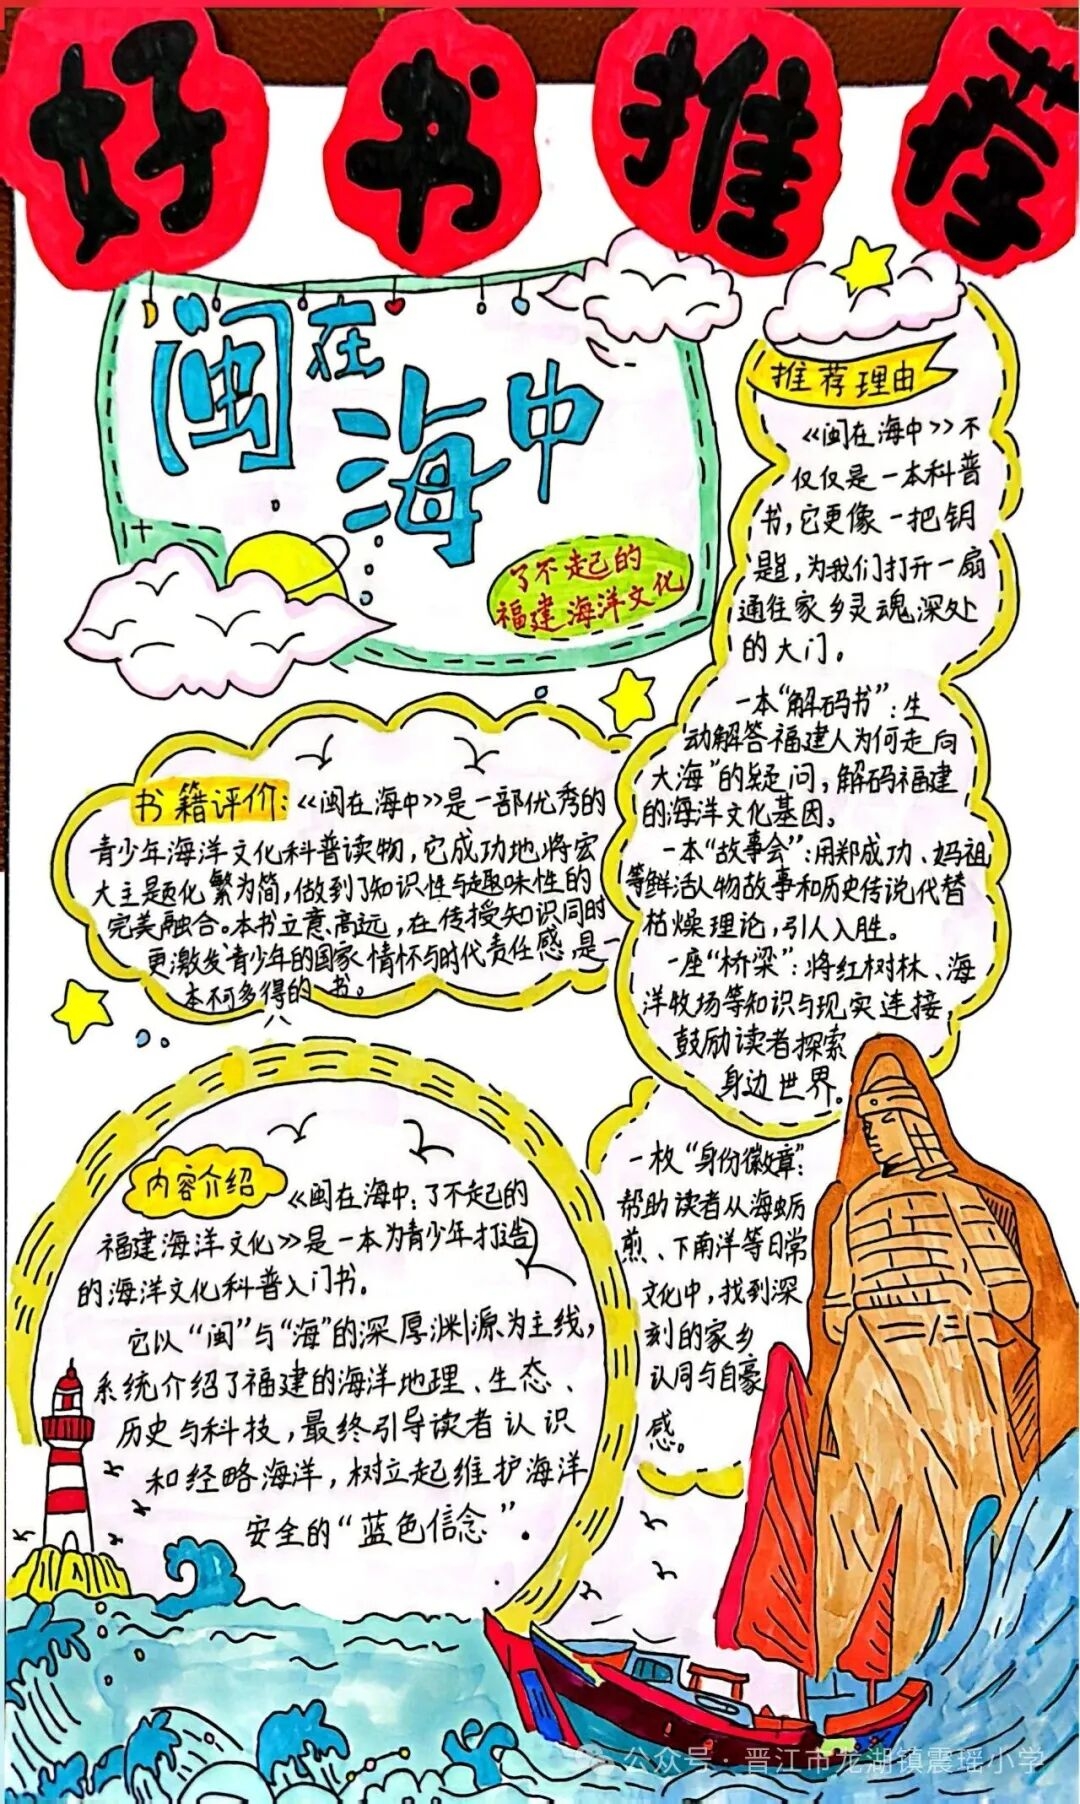 好书推荐
闽在海中
了不起的
福建海洋文化
推荐理由
《闽在海中》不
仅仅是一本科普
书，它更像一把钥
匙，为我们打开一扇
通往家乡灵魂深处
的大门。
一本“解码书”：生
动解答福建人为何走向
大海”的疑问，解码福建
的海洋文化基因。
一本“故事会”：用郑成功、妈祖
等鲜活人物故事和历史传说代替
枯燥理论，引人入胜。
一座“桥梁”：将红树林、海
洋牧场等知识与现实连接，
鼓励读者探索
身边世界。
一枚“身份徽章”：
帮助读者从海蛎
煎、下南洋等日常
文化中，找到深
刻的家乡
认同与自豪
感。
书籍评价：《闽在海中》是一部优秀的
青少年海洋文化科普读物，它成功地将宏
大主题化繁为简，做到了知识性与趣味性的
完美融合。本书立意高远，在传授知识同时
更激发青少年的国家情怀与时代责任感，是一
本不可多得的书。
内容介绍
《闽在海中：了不起的
福建海洋文化》是一本为青少年打造
的海洋文化科普入门书。
它以“闽”与“海”的深厚渊源为主线，
系统介绍了福建的海洋地理、生态、
历史与科技，最终引导读者认识
和经略海洋，树立起维护海洋
安全的“蓝色信念”.
公众号·晋江市龙湖镇震瑶小学